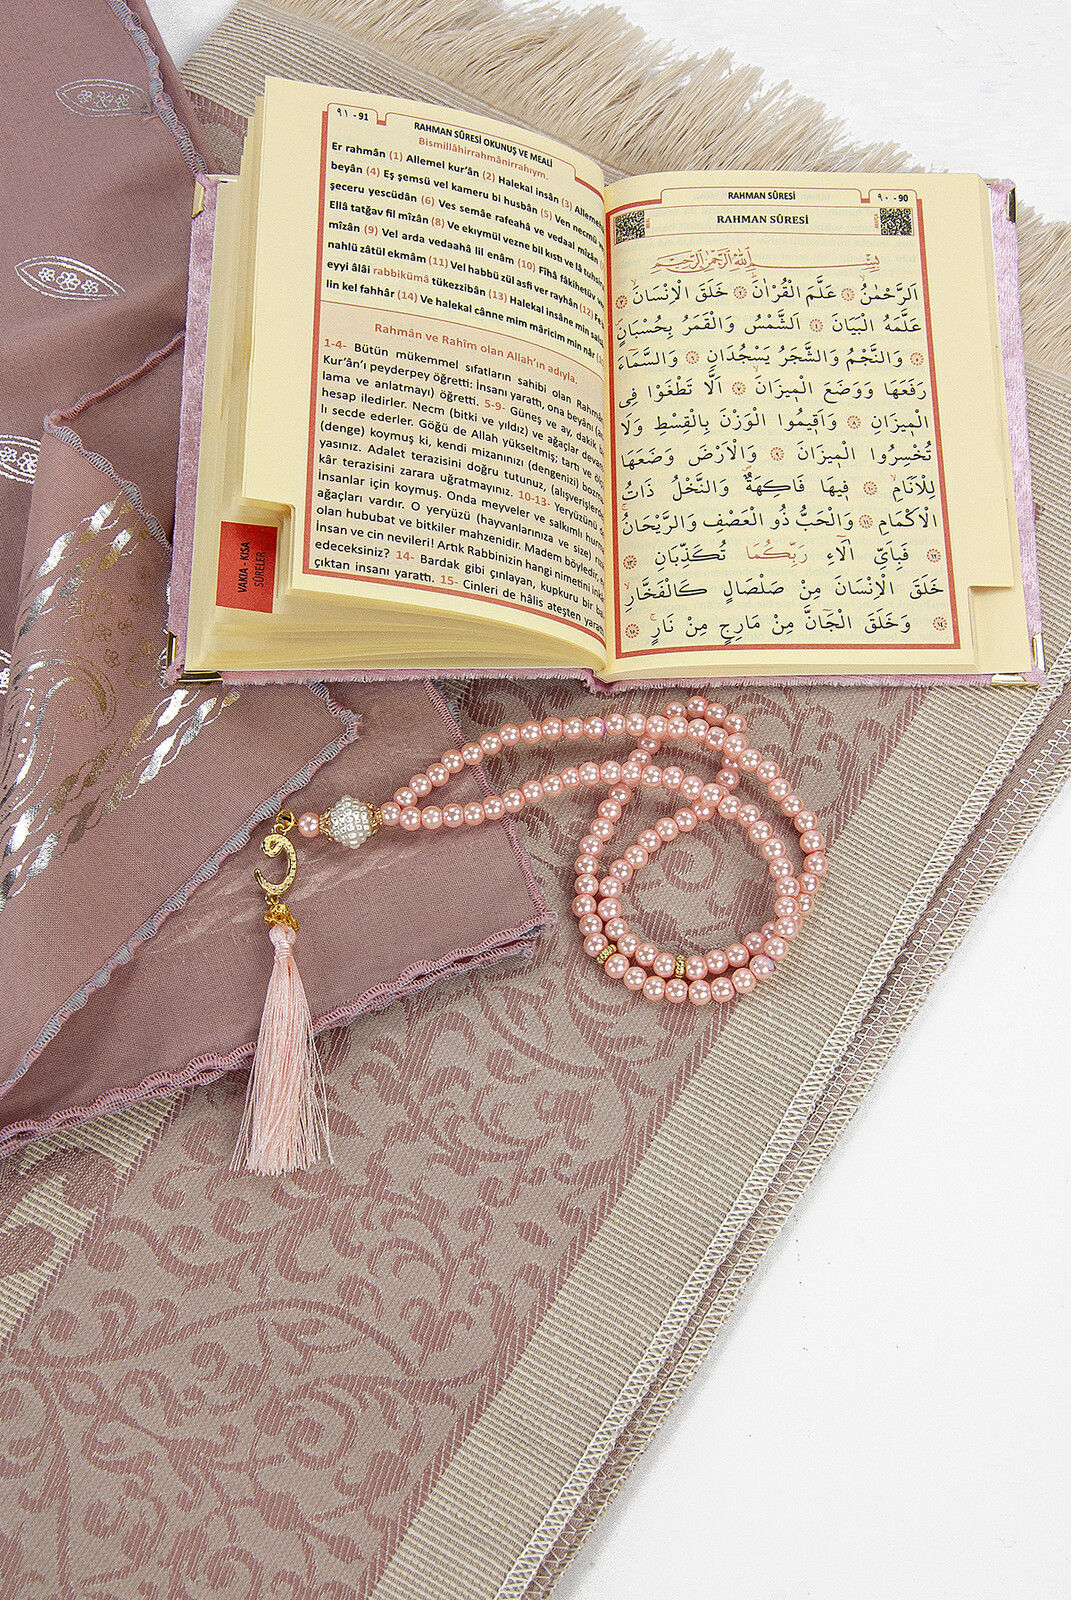 ٩١ - 91
RAHMAN SÛRESİ OKUNUŞ VE MEALİ
Bismillâhirrahmânirrahıym.
Er rahmân (1) Allemel kur'ân (2) Halekal insân (3) Allemehül
beyân (4) Eş şemsü vel kameru bi husbân (5) Ven necmü
şeceru yescüdân (6) Ves semâe rafeahâ ve vedaal mîzân
Ellâ tatğav fil mîzân (8) Ve ekıymül vezne bil kıstı ve lâ tuhsirul
mîzân (9) Vel arda vedaahâ lil enâm (10) Fîhâ fâkihetüv
nahlü zâtül ekmâm (11) Vel habbü zül asfi ver rayhân (12)
eyyi âlâi rabbikümâ tükezzibân (13) Halekal insâne min
lin kel fahhâr (14) Ve halekal cânne mim mâricim min nâr
Rahmân ve Rahîm olan Allah'ın adıyla.
1-4- Bütün mükemmel sıfatların sahibi olan Rahmân,
Kur'ân'ı peyderpey öğretti: İnsanı yarattı, ona beyânı
lama ve anlatmayı) öğretti. 5-9- Güneş ve ay, dakik bir
hesap iledirler. Necm (bitki ve yıldız) ve ağaçlar
lı secde ederler. Göğü de Allah yükseltmiş; tartı ve
(denge) koymuş ki, kendi mizanınızı (dengenizi)
yasınız. Adalet terazisini doğru tutunuz, (alışverişlerde
kâr terazisini zarara uğratmayınız. 10-13- Yeryüzünü
İnsanlar için koymuş. Onda meyveler ve salkımlı hurma
ağaçları vardır. O yeryüzü (hayvanlarınıza ve size)
olan hububat ve bitkiler mahzenidir. Madem böyledir,
İnsan ve cin nevileri! Artık Rabbinizin hangi nimetini
edeceksiniz? 14- Bardak gibi çınlayan, kupkuru bir
çıktan insanı yarattı. 15- Cinleri de hâlis ateşten
VAKIA - KISA
SÛRELER
RAHMAN SÛRESİ
٩٠ - 90
RAHMAN SÛRESİ
بِسْمِ اللّٰهِ الرَّحْمٰنِ الرَّحِيمِ
اَلرَّحْمٰنُۙ ﴿١﴾ عَلَّمَ الْقُرْاٰنَۜ ﴿٢﴾ خَلَقَ الْاِنْسَانَۙ ﴿٣﴾
عَلَّمَهُ الْبَيَانَ ﴿٤﴾ اَلشَّمْسُ وَالْقَمَرُ بِحُسْبَانٍ
﴿٥﴾ وَالنَّجْمُ وَالشَّجَرُ يَسْجُدَانِ ﴿٦﴾ وَالسَّمَٓاءَ
رَفَعَهَا وَوَضَعَ الْم۪يزَانَۙ ﴿٧﴾ اَلَّا تَطْغَوْا فِي
الْم۪يزَانِ ﴿٨﴾ وَاَق۪يمُوا الْوَزْنَ بِالْقِسْطِ وَلَا
تُخْسِرُوا الْم۪يزَانَ ﴿٩﴾ وَالْاَرْضَ وَضَعَهَا
لِلْاَنَامِۙ ﴿١٠﴾ ف۪يهَا فَاكِهَةٌۙ وَالنَّخْلُ ذَاتُ
الْاَكْمَامِ ﴿١١﴾ وَالْحَبُّ ذُو الْعَصْفِ وَالرَّيْحَانُۚ
﴿١٢﴾ فَبِاَيِّ اٰلَٓاءِ رَبِّكُمَا تُكَذِّبَانِ ﴿١٣﴾
خَلَقَ الْاِنْسَانَ مِنْ صَلْصَالٍ كَالْفَخَّارِۙ
﴿١٤﴾ وَخَلَقَ الْجَٓانَّ مِنْ مَارِجٍ مِنْ نَارٍۚ ﴿١٥﴾